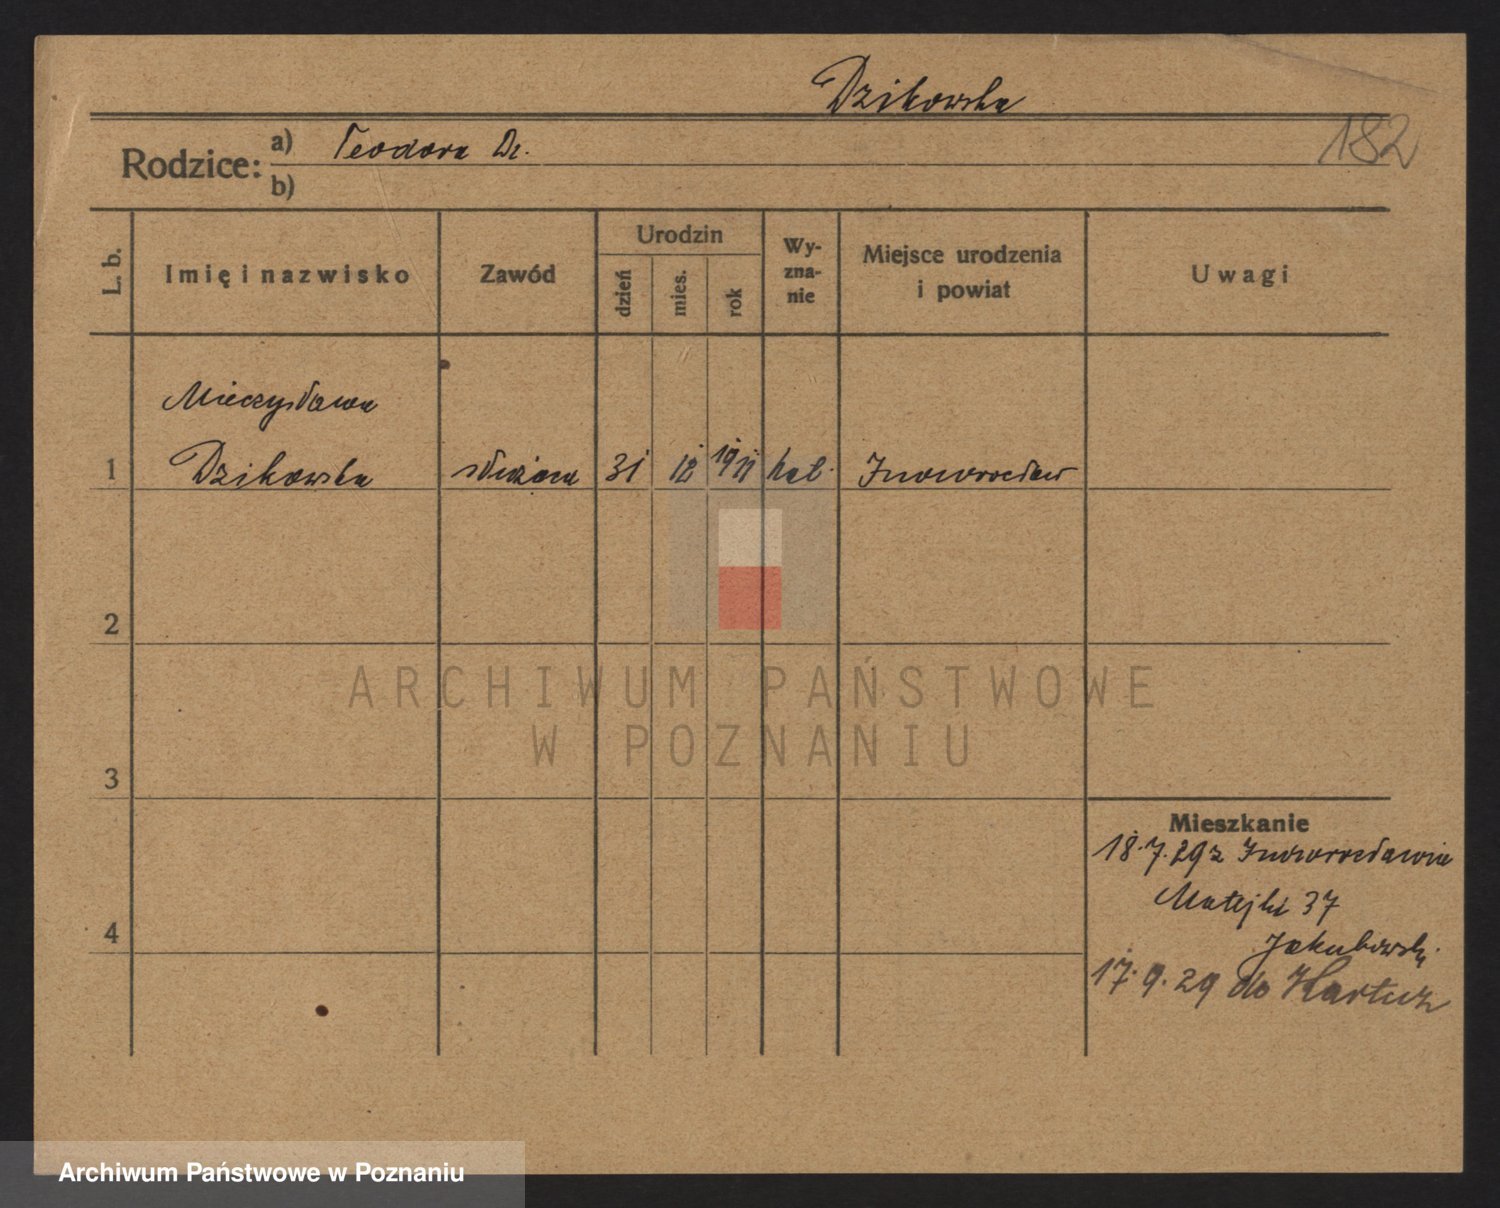 Dzikowska
182
Rodzice: a) Teodora Dz.
b)
L. b. Imię i nazwisko Zawód Urodzin dzień mies. rok Wyzna-nie Miejsce urodzenia i powiat Uwagi
Mieczysława
1 Dzikowska służąca 31 12 1911 kat. Inowrocław
2
ARCHIWUM PAŃSTWOWE
W POZNANIU
3
Mieszkanie
18.7.29 z Inowrocławia
Matejki 37
4
Jakubowski
17.9.29 do Kartuz
Archiwum Państwowe w Poznaniu